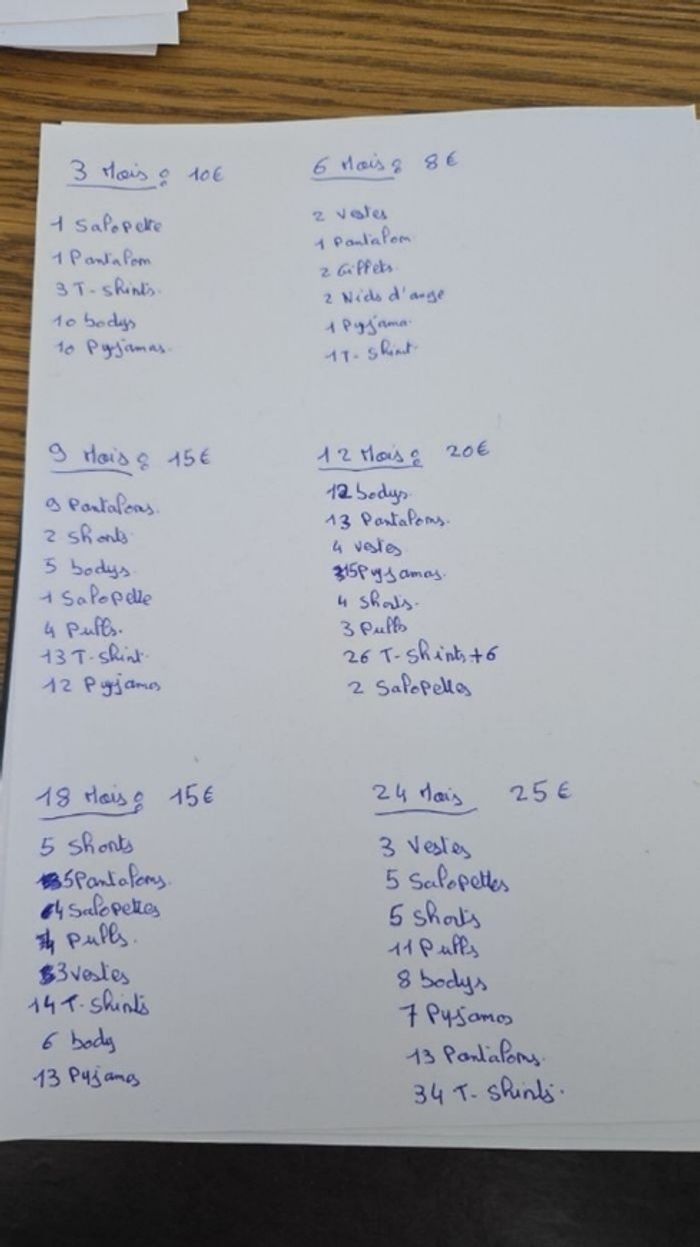 3 Mois : 10€
1 Salopette
1 Pantalon
3 T-shirts.
10 bodys
10 Pyjamas.
6 Mois : 8€
2 vestes
1 Pantalon
2 Gillets.
2 Nids d'ange
1 Pyjama
1 T-shirt.
9 Mois : 15€
9 Pantalons.
2 shorts
5 bodys
1 Salopette
4 Pulls.
13 T-shirt.
12 Pyjamas
12 Mois : 20€
12 bodys.
13 Pantalons.
4 vestes
15 Pyjamas.
4 Shorts.
3 Pulls
26 T-shirts + 6
2 Salopettes
18 Mois : 15€
5 Shorts
5 Pantalons.
4 Salopettes
4 Pulls.
3 vestes
14 T-shirts
6 body
13 Pyjamas
24 Mois 25€
3 Vestes
5 Salopettes
5 Shorts
11 Pulls
8 bodys
7 Pyjamas
13 Pantalons.
34 T-shirts.